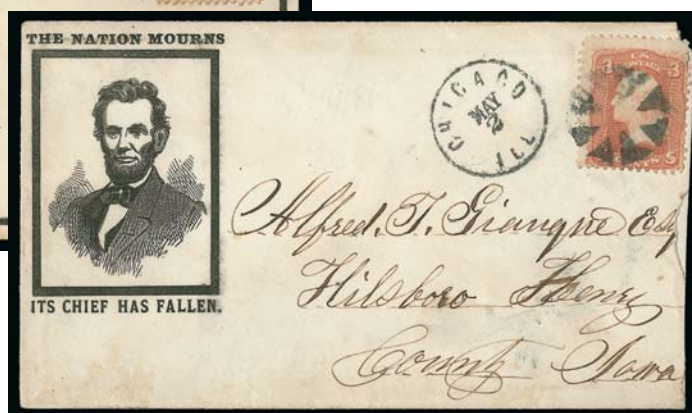 THE NATION MOURNS
ITS CHIEF HAS FALLEN.
CHICAGO
MAY
2
ILL
3 U.S. 3
Alfred. T. Giauque Esq
Hilsboro Henry
County Iowa